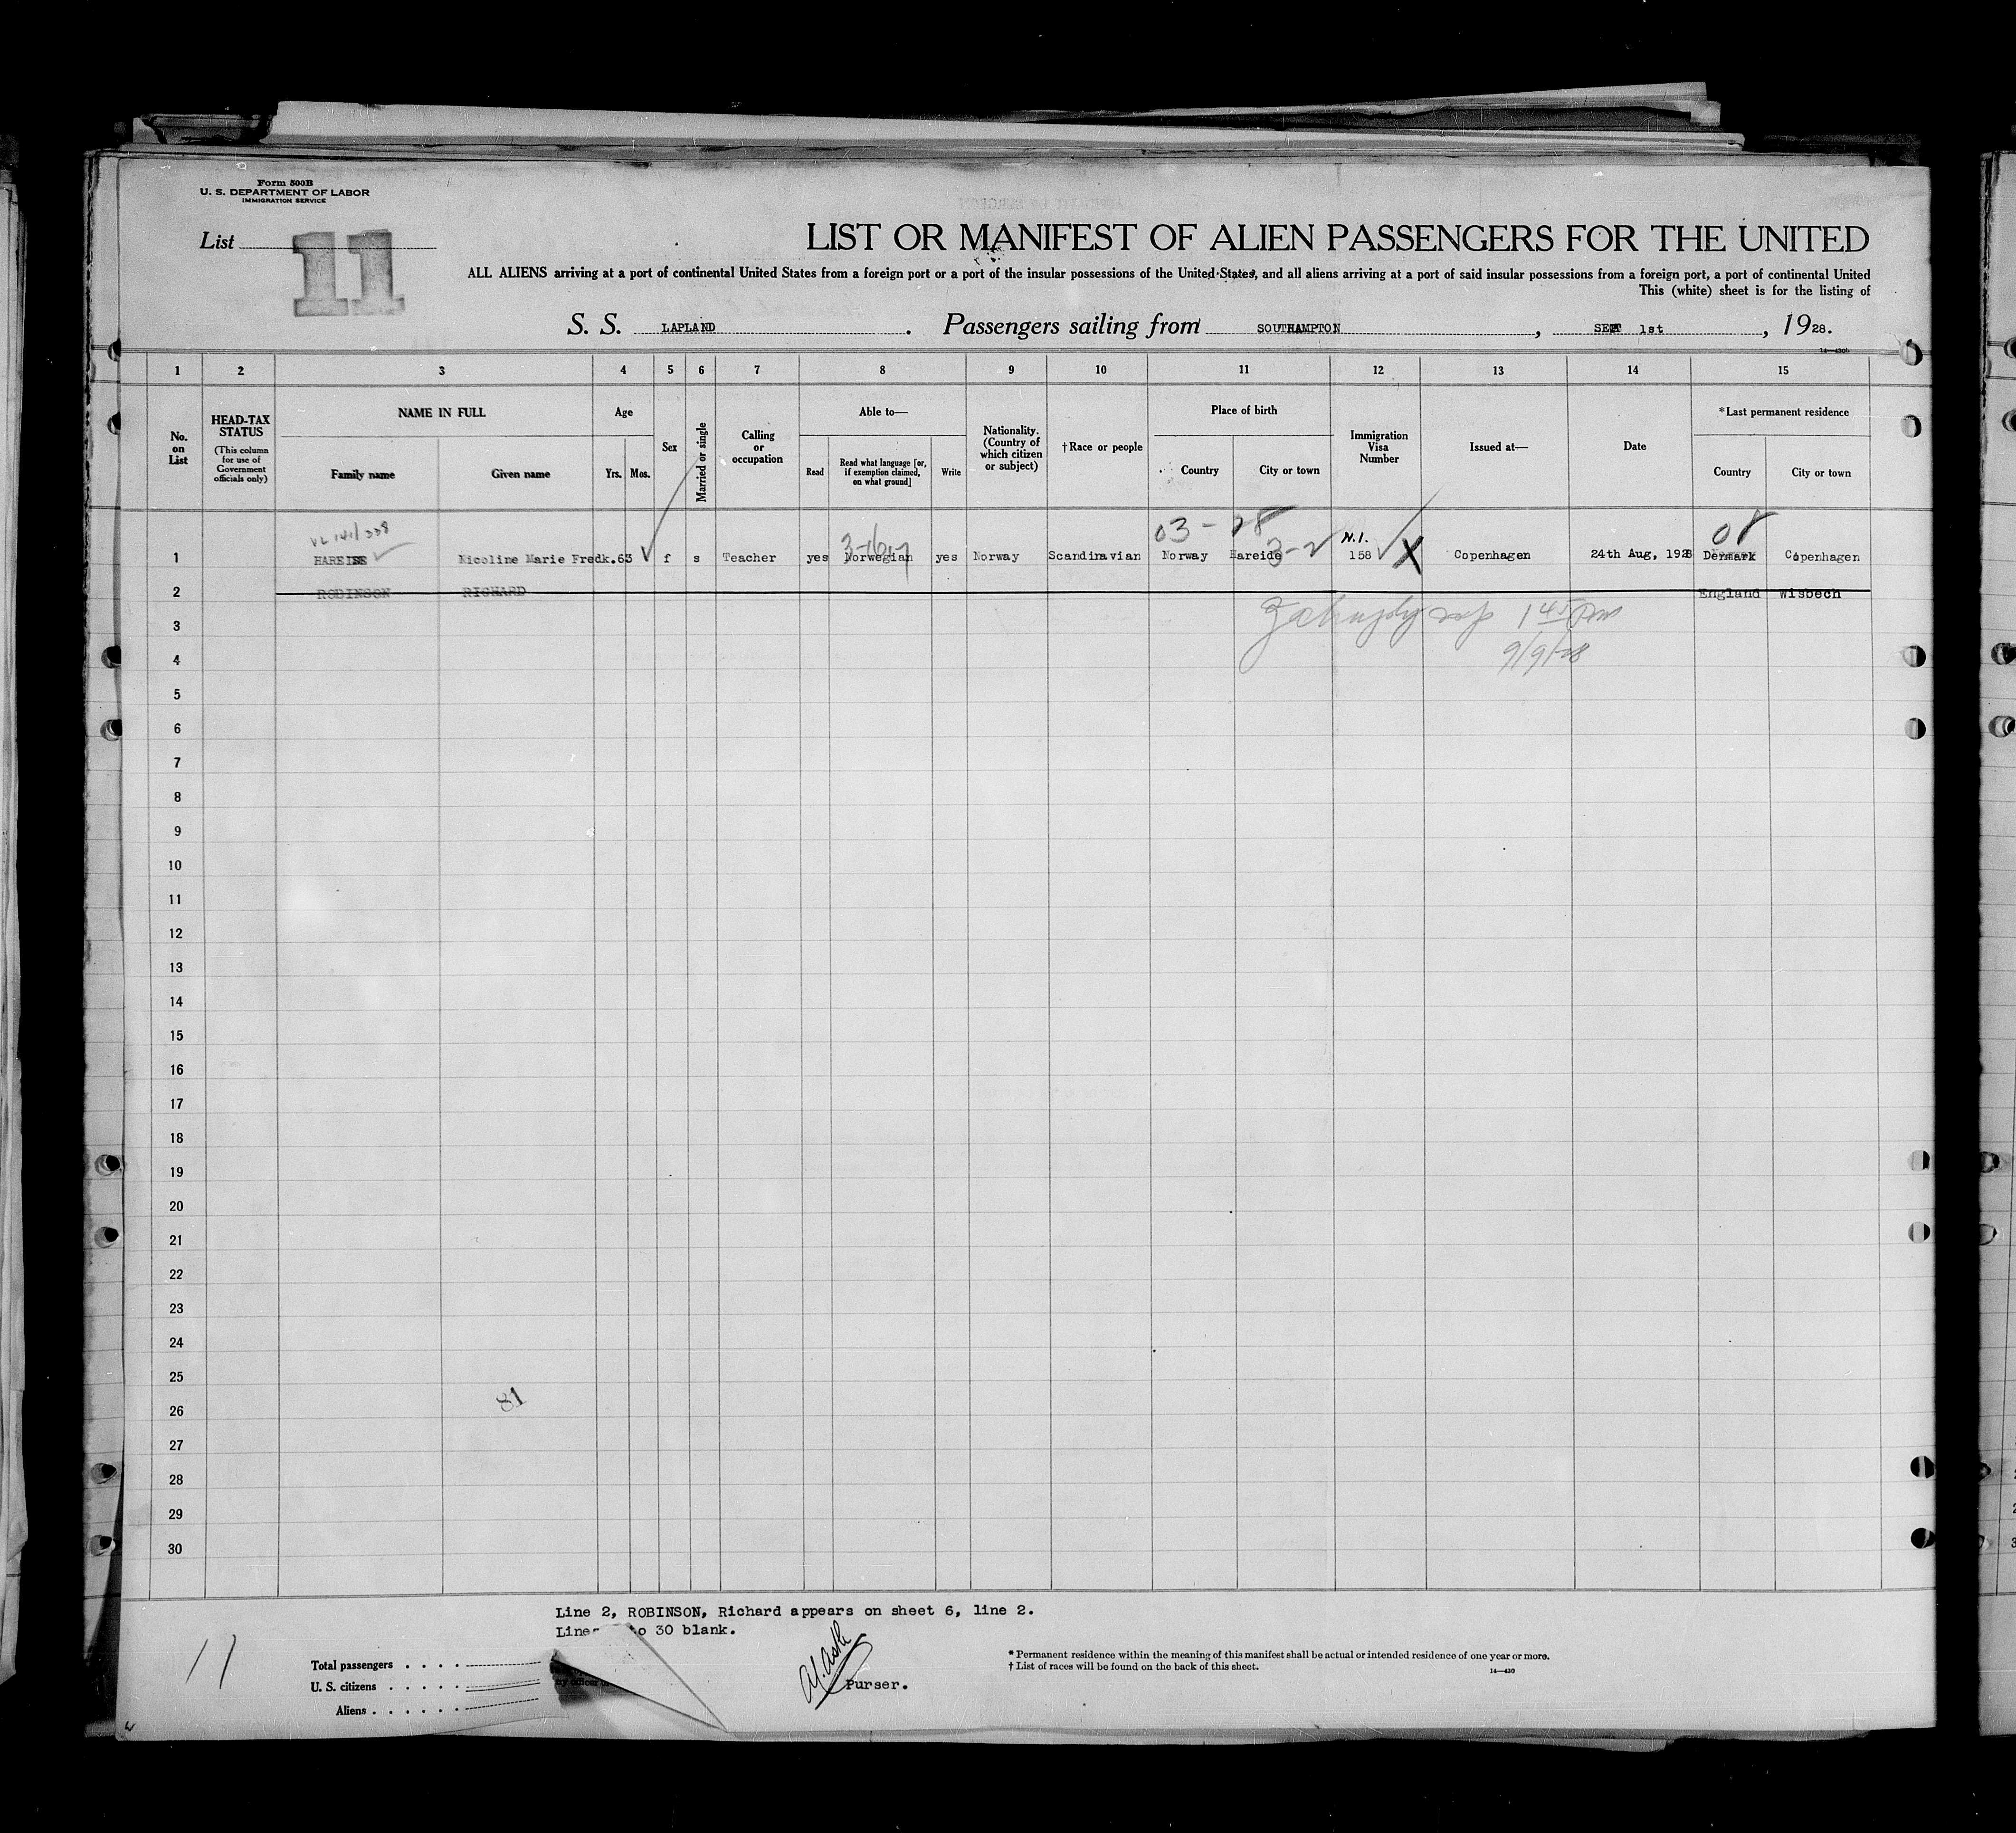 Form 500B
U. S. DEPARTMENT OF LABOR
IMMIGRATION SERVICE
List 11
LIST OR MANIFEST OF ALIEN PASSENGERS FOR THE UNITED
ALL ALIENS arriving at a port of continental United States from a foreign port or a port of the insular possessions of the United States, and all aliens arriving at a port of said insular possessions from a foreign port, a port of continental United
This (white) sheet is for the listing of
S. S. LAPLAND . Passengers sailing from SOUTHAMPTON , SEPT 1st , 1928.
1 2 3 4 5 6 7 8 9 10 11 12 13 14 15
No. on List
HEAD-TAX STATUS
(This column for use of Government officials only)
NAME IN FULL
Family name Given name
Age
Yrs. Mos.
Sex
Married or single
Calling or occupation
Able to—
Read
Read what language [or, if exemption claimed, on what ground]
Write
Nationality. (Country of which citizen or subject)
†Race or people
Place of birth
Country City or town
Immigration Visa Number
Issued at—
Date
*Last permanent residence
Country City or town
03 - 3-2 N.I.
1 Nicoline Marie Fredk. 63 f s Teacher yes Norwegian yes Norway Scandinavian Norway Hareide 158 X Copenhagen 24th Aug, 1928 Denmark Copenhagen
2 ROBINSON RICHARD England Wisbech
3
4 9/9/28
5
6
7
8
9
10
11
12
13
14
15
16
17
18
19
20
21
22
23
24
25
26 81
27
28
29
30
Line 2, ROBINSON, Richard appears on sheet 6, line 2.
to 30 blank.
11
Total passengers
U. S. citizens
Aliens
Purser.
* Permanent residence within the meaning of this manifest shall be actual or intended residence of one year or more.
† List of races will be found on the back of this sheet.
14—430